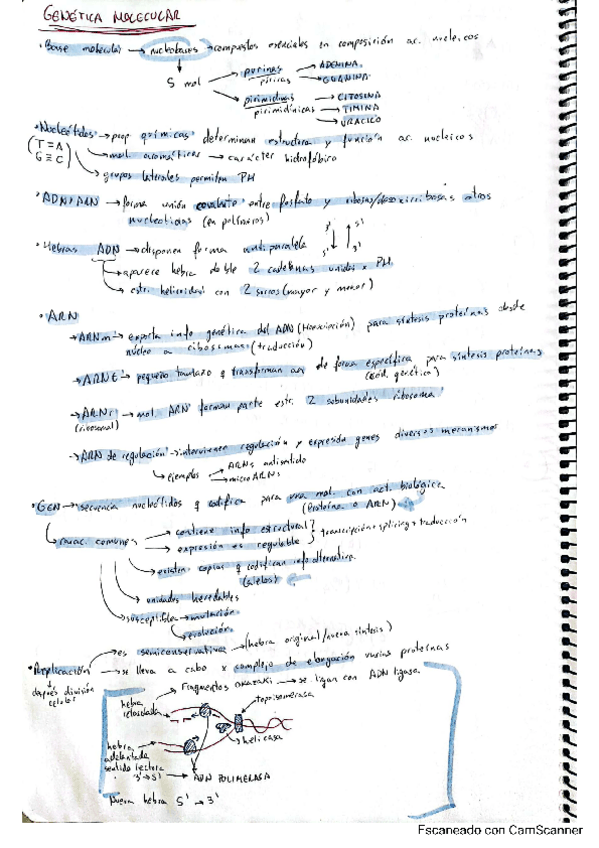 GENÉTICA MOLECULAR
· Base molecular → nucleobases → compuestos esenciales en composición ac. nucleicos
5 mol
purinas → ADENINA
púricas → GUANINA
pirimidinas → CITOSINA
pirimidínicas → TIMINA
→ URACILO
· Nucleótidos → prop químicas determinan estructura y función ac. nucleicos
(T=A G≡C) → mol. aromáticas → carácter hidrofóbico
→ grupos laterales permiten PH
· ADN/ARN → forma unión covalente entre fosfato y ribosas/desoxirribosas otros
nucleótidos (en polímeros)
· Hebras ADN → disponen forma antiparalela 3' 5' ↓ ↑ 5' 3'
→ aparece hebra doble 2 cadenas unidas x PH
→ estr. helicoidal con 2 surcos (mayor y menor)
· ARN
→ ARNm → exporta info genética del ADN (transcripción) para síntesis proteínas desde
núcleo a ribosomas (traducción)
→ ARNt → pequeño tamaño q transforman aa de forma específica para síntesis proteínas
(cód. genético)
→ ARNr → mol. ARN forman parte estr. 2 subunidades ribosoma
(ribosomal)
→ ARN de regulación → intervienen regulación y expresión genes diversos mecanismos
→ ejemplos → ARNs antisentido
→ microARNs
· GEN → secuencia nucleótidos q codifica para una mol. con act. biológica
(Proteína o ARN)
→ carac. comunes → contiene info estructural
→ expresión es regulable } transcripción + splicing + traducción
→ existen copias q codifican info alternativa
(alelos)
→ unidades heredables
→ susceptibles → mutación
→ evolución
→ es semiconservativa → (hebra original/nueva síntesis)
· Replicación → se lleva a cabo x complejo de elongación varias proteínas
↓ después división celular
Fragmentos okazaki → se ligan con ADN ligasa
hebra retrasada
topoisomerasa
helicasa
hebra adelantada
sentido lectura
3' → 5'
ADN POLIMERASA
Nueva hebra 5' → 3'
Escaneado con CamScanner